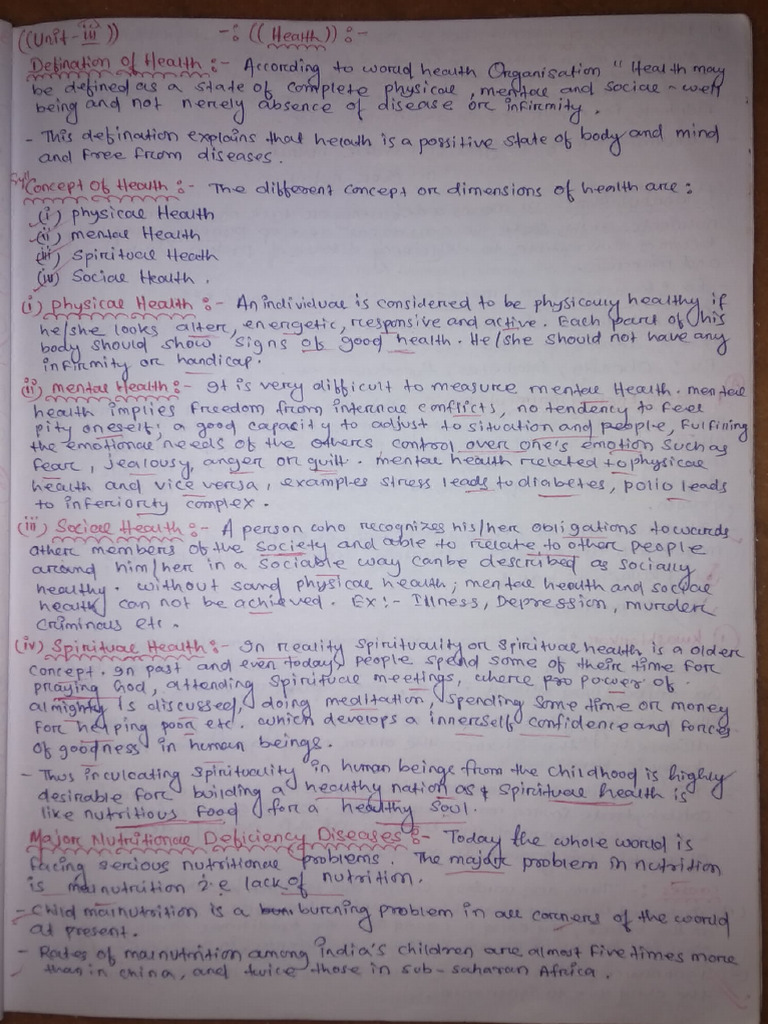 ((Unit-iii)) -: ((Health)) :-
Defination of Health :- According to world health Organisation "Health may
be defined as a state of complete physical, mental and social-well
being and not merely absence of disease or infirmity.
- This defination explains that health is a possitive state of body and mind
and free from diseases.
Concept of Health :- The different concept or dimensions of health are:
(i) physical Health
(ii) mental Health
(iii) Spiritual Health
(iv) Social Health.
(i) Physical Health :- An individual is considered to be physically healthy if
he/she looks alter, energetic, responsive and active. Each part of his
body should show signs of good health. He/she should not have any
infirmity or handicap.
(ii) mental Health :- It is very difficult to measure mental Health. mental
health implies freedom from internal conflicts, no tendency to feel
pity oneself; a good capacity to adjust to situation and people, fulfilling
the emotional needs of the others control over one's emotion such as
fear, jealousy, anger or guilt. mental health related to physical
health and vice versa, examples stress leads to diabetes, polio leads
to inferiority complex.
(iii) Social Health :- A person who recognizes his/her obligations towards
other members of the society and able to relate to other people
around him/her in a sociable way can be described as socially
healthy. without sand physical health; mental health and social
health can not be achieved. Ex:- Illness, Depression, murder
criminals etc.
(iv) Spiritual Health :- In reality spirituality or spiritual health is a older
concept. In past and even today people spend some of their time for
praying God, attending spiritual meetings, where pro power of
almighty is discussed, doing meditation, spending some time or money
for helping poor etc. which develops a innerself confidence and forces
of goodness in human beings.
- Thus inculcating spirituality in human beings from the childhood is highly
desirable for building a healthy nation as spiritual health is
like nutritious food for a healthy soul.
Major Nutritional Deficiency Diseases :- Today the whole world is
facing serious nutritional problems. The major problem in nutrition
is malnutrition i.e lack of nutrition.
- Child malnutrition is a burning problem in all corners of the world
at present.
- Rates of malnutrition among india's children are almost five times more
than in china, and twice those in sub-saharan Africa.